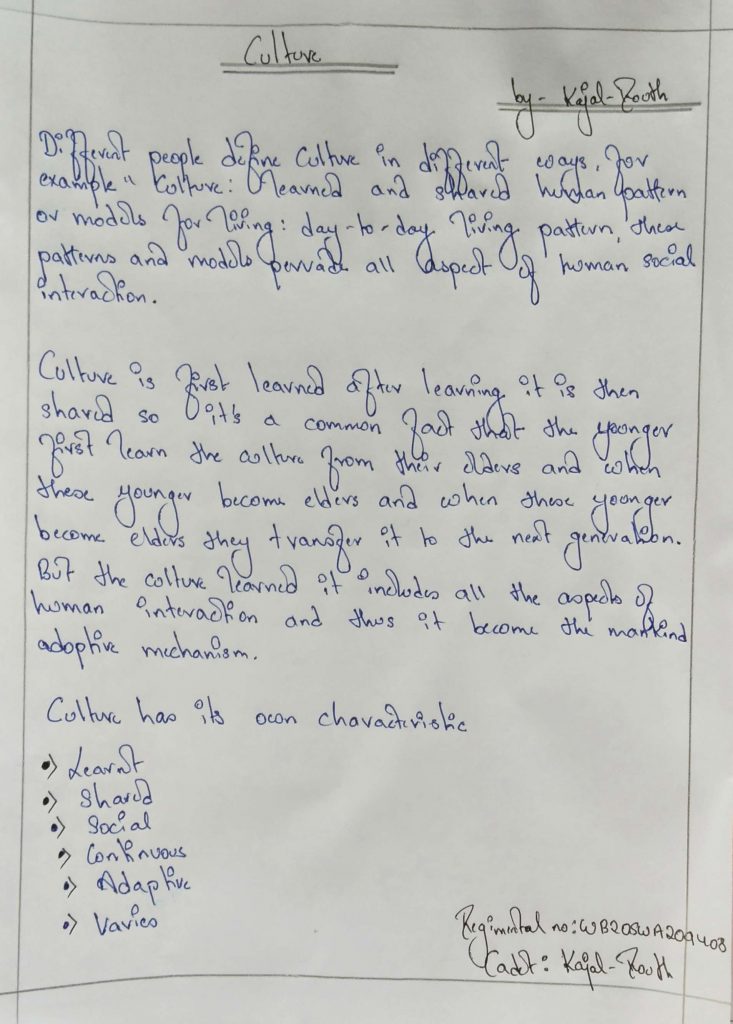 Culture
by - Kajal-Routh
Different people define Culture in different ways, for
example " Culture: learned and shared human pattern
or models for living: day-to-day living pattern, these
patterns and models pervade all aspect of human social
interaction.
Culture is first learned after learning it is then
shared so it's a common fact that the younger
first learn the culture from their elders and when
these younger become elders and when these younger
become elders they transfer it to the next generation.
But the culture learned it includes all the aspects of
human interaction and thus it become the mankind
adoptive mechanism.
Culture has its own characteristic
•> Learnt
•> Shared
•> Social
•> Continuous
•> Adaptive
•> Varies
Regimental no: WB20SWA209408
Cadet: Kajal-Routh